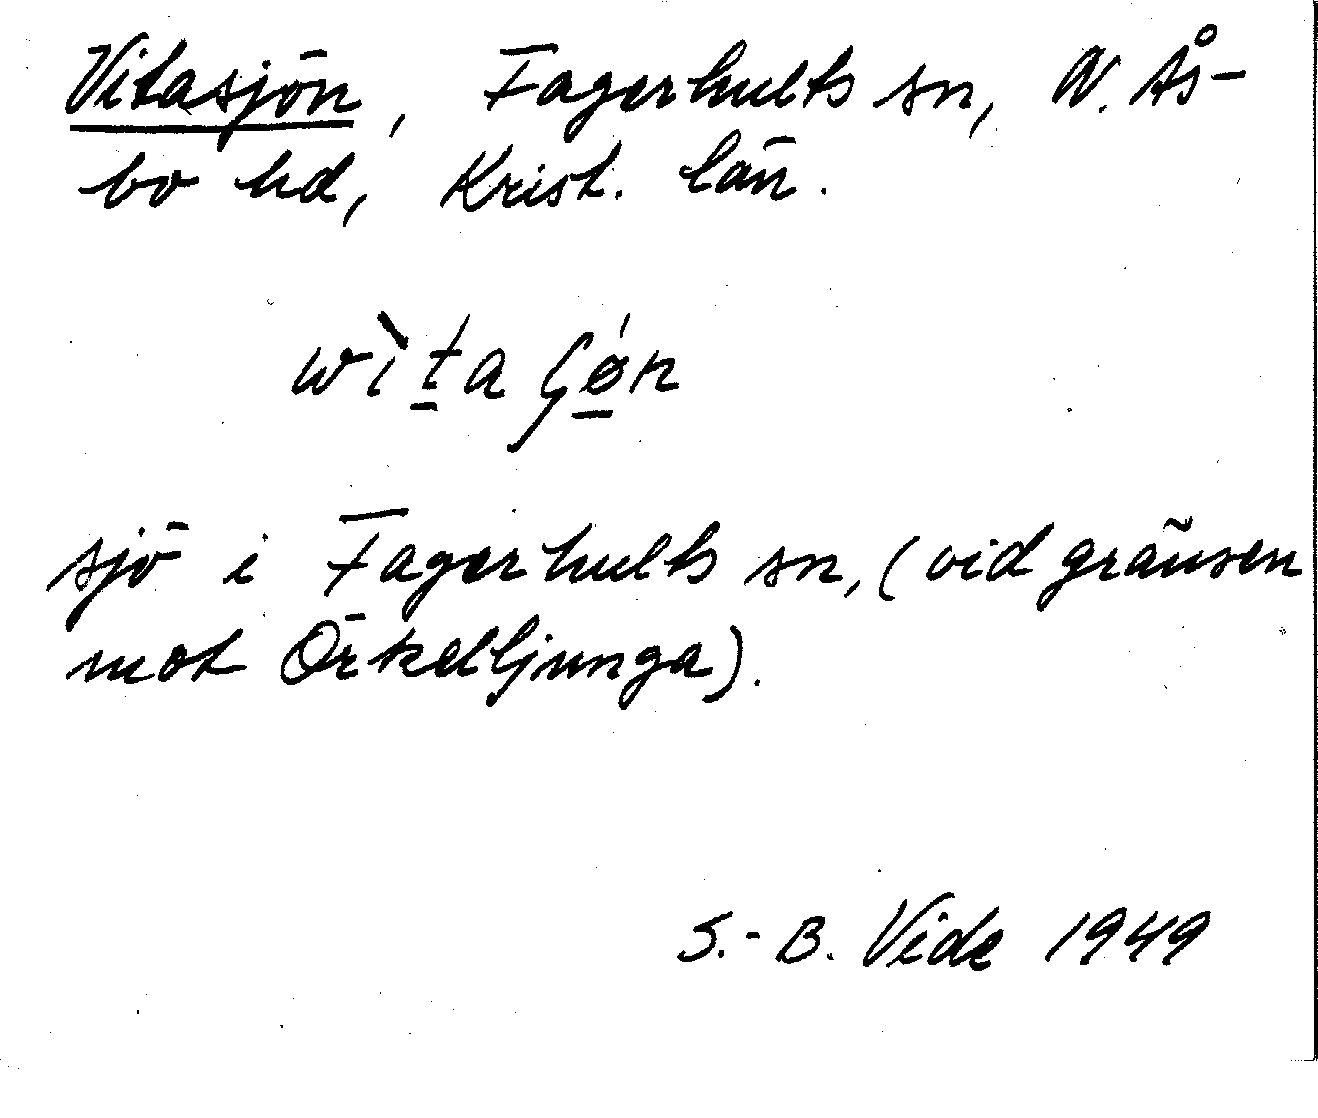 Vitasjön, Fagerhults sn, N. Ås-
bo hd, Krist. län.
wìṯa ʃǿ̱n
sjö i Fagerhults sn, (vid gränsen
mot Örkelljunga).
S.-B. Vide 1949